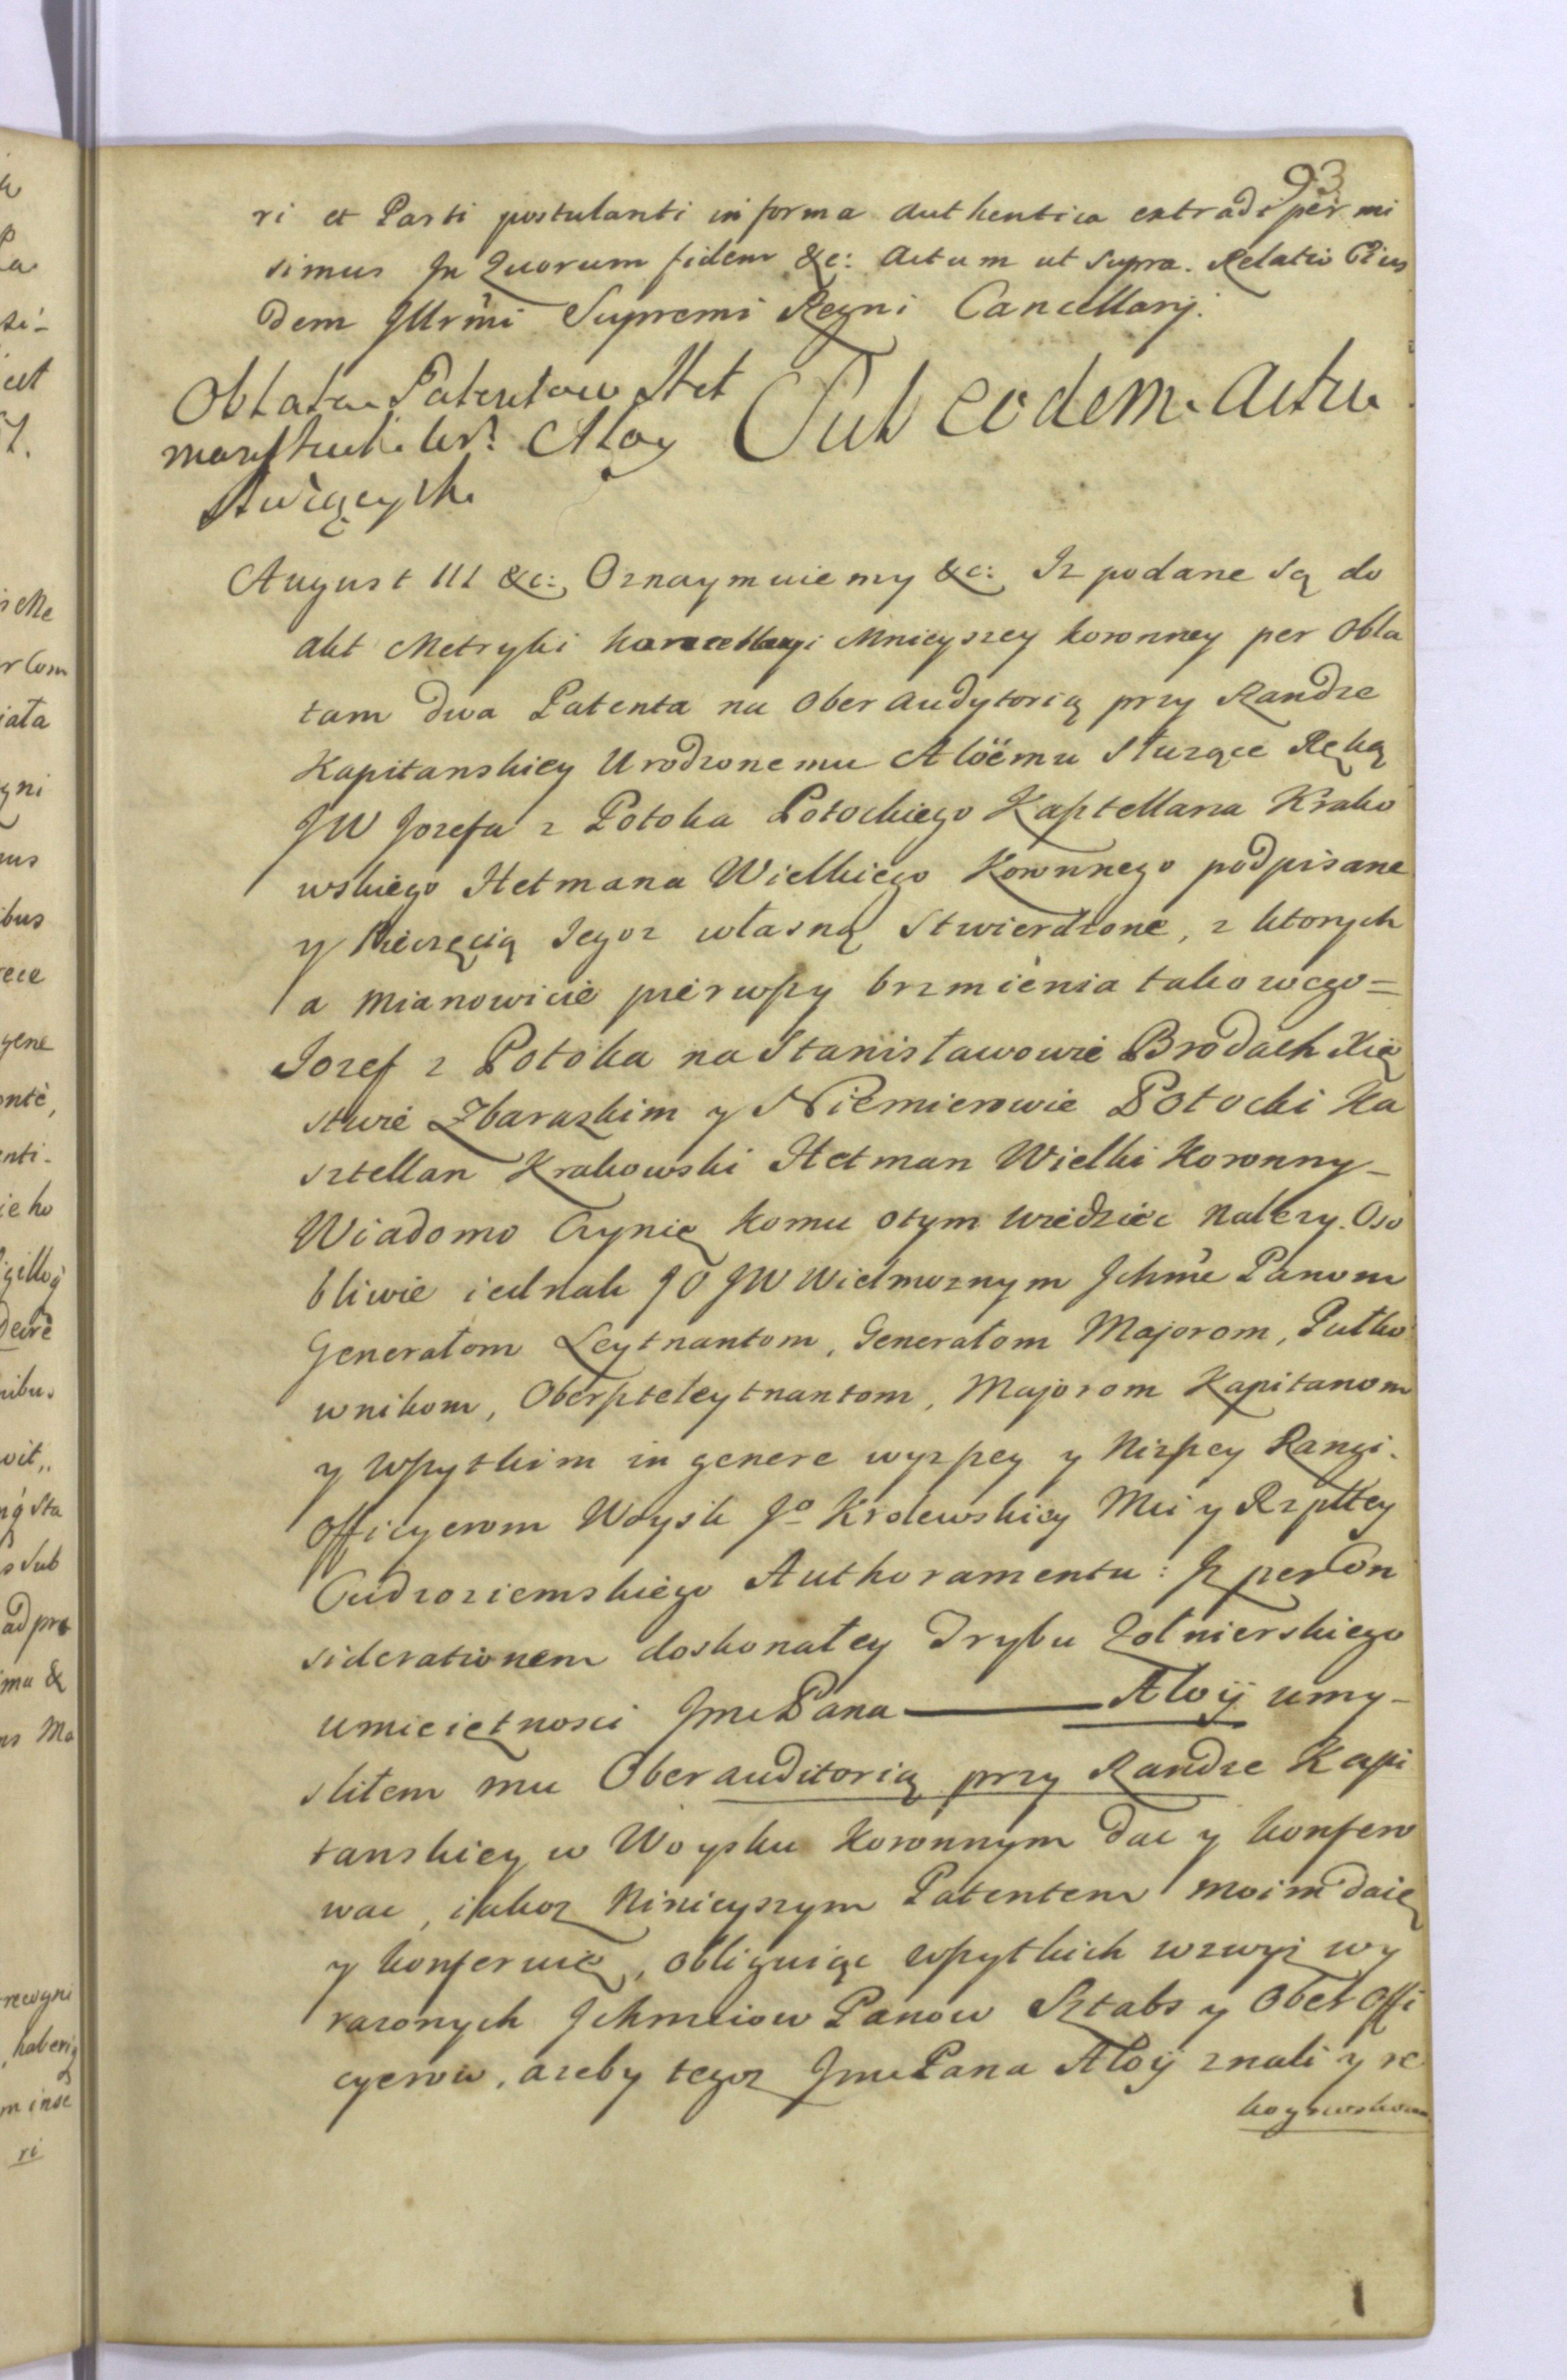 93
ri et Parti postulanti in forma authentica extradi permi
simus In Quorum fidem &c: Actum ut Supra. Relatio Eius
dem Illrm̃i Supremi Regni Cancellarij.
Oblata Patentow Het
manskich Ur: Aloy
służących
Sub eodem Actu
August III &c: Oznaymuiemy &c: Iz podane są do
akt Metryki kancellaryi Mnieyszey koronney per Obla
tam dwa Patenta na Ober Audytorią przy Randze
Kapitanskiey Urodzonemu Aloëmu służące Ręką
JW Jozefa z Potoka Potockiego Kasztellana Krako
wskiego Hetmana Wielkiego Koronnego podpisane
y Pieczęcią Jegoz własną stwierdzone, z ktorych
a mianowicie pierwszy brzmienia takowego=
Jozef z Potoka na Stanisławowie Brodach Xię
stwie Zbarazkim y Niemierowie Potocki Ka
sztellan Krakowski Hetman Wielki Koronny_
Wiadomo Czynię komu otym wiedziec nalezy. Oso
bliwie iednak JO JW Wielmoznym Ichm̃c Panom
Generałom Leytnantom, Generałom Majorom, Pułko
wnikom, Oberszteleytnantom, Majorom Kapitanom
y wszytkim in genere wyzszey y Nizszey Rangi
Officyerom Woysk Jo Krolewskiey Mci y Rzpltey
Cudzoziemskiego Authoramentu: Iz per Con
siderationem doskonałey Trybu Zołnierskiego
umieiętnosci Jmc Pana ——— Aloij umy-
sliłem mu Oberauditorią przy Randze Kapi
tanskiey w Woysku Koronnym dac y konfero
wac, iakoz Ninieyszym Patentem moim daię
y konferuię, obliguiąc wszytkich wzwyż wy
razonych Ichmciow Panow Sztabs y Ober Offi
cyerow, azeby tegoz Jmc Pana Aloij znali y re